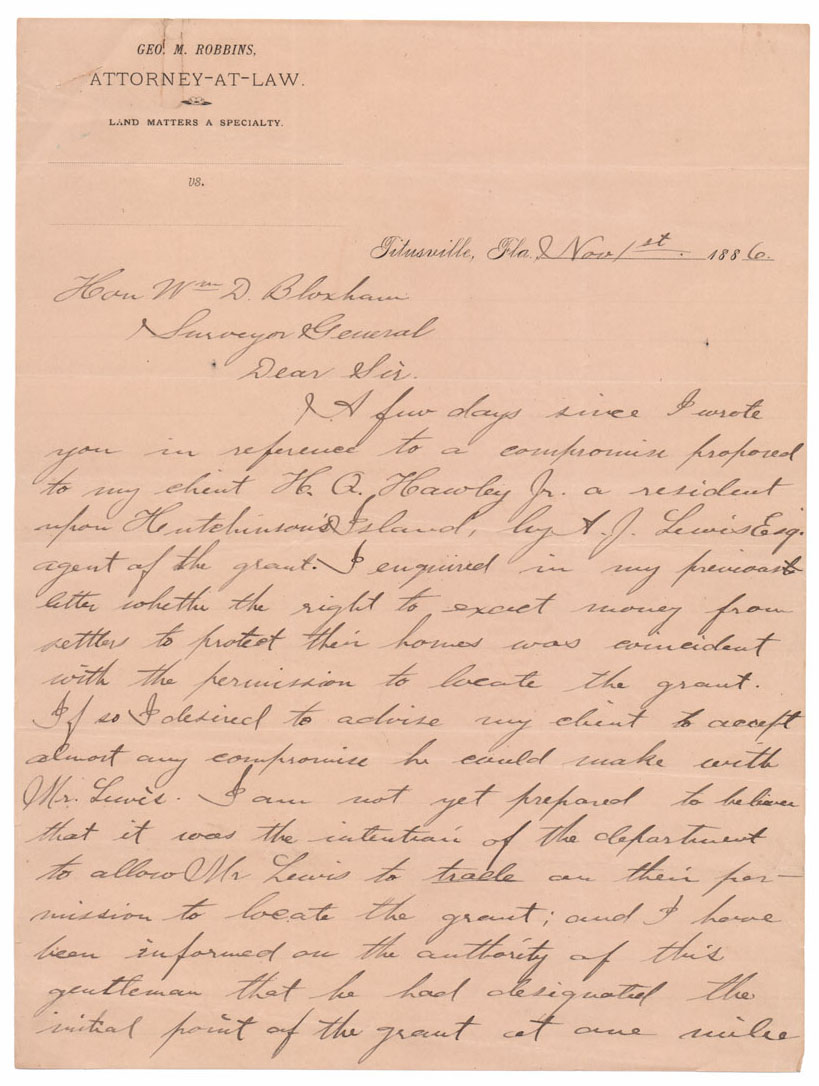 GEO. M. ROBBINS,
ATTORNEY-AT-LAW.
LAND MATTERS A SPECIALTY.
vs.
Titusville, Fla., Nov 1st. 1886.
Hon Wm D. Bloxham
Surveyor General
Dear Sir.
A few days since I wrote
you in reference to a compromise proposed
to my client H. Q. Hawley Jr. a resident
upon Hutchinson's Island, by A. J. Lewis Esq.
agent of the grant. I enquired in my previous
letter whether the right to exact money from
settlers to protect their homes was coincident
with the permission to locate the grant.
If so I desired to advise my client to accept
almost any compromise he could make with
Mr. Lewis. I am not yet prepared to believe
that it was the intention of the department
to allow Mr Lewis to trade on their per-
mission to locate the grant; and I have
been informed on the authority of this
gentleman that he had designated the
initial point of the grant at one mile